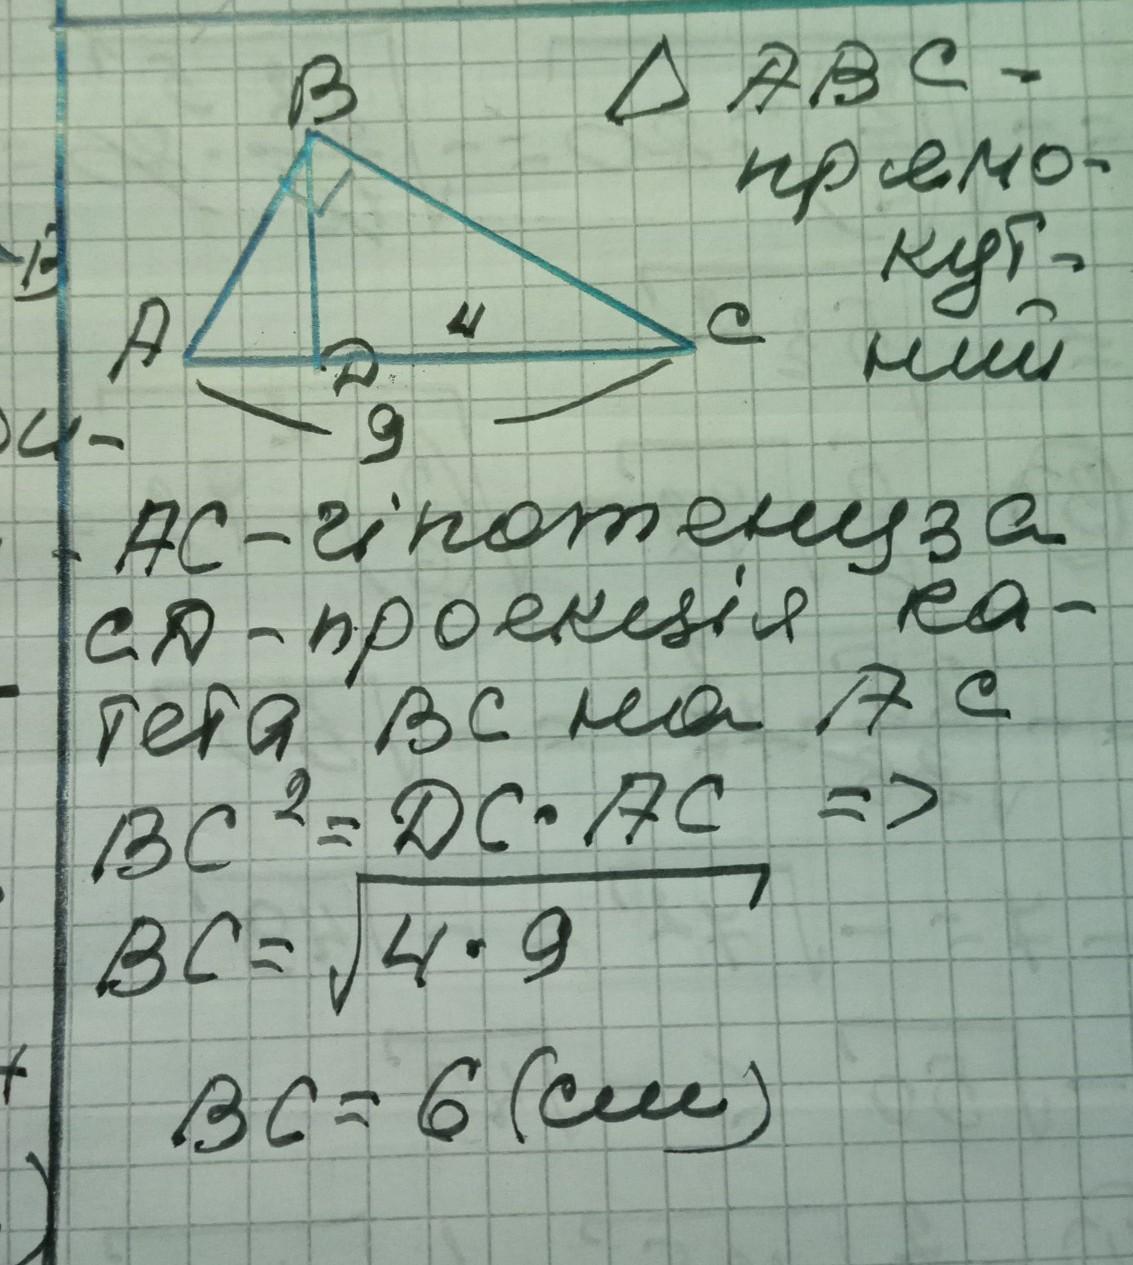 B
△ ABC -
прямо-
кут-
ний
A
4
C
D
9
AC - гіпотенуза
CD - проекція ка-
тета BC на AC
BC² = DC · AC =>
BC = √4 · 9
BC = 6 (см)